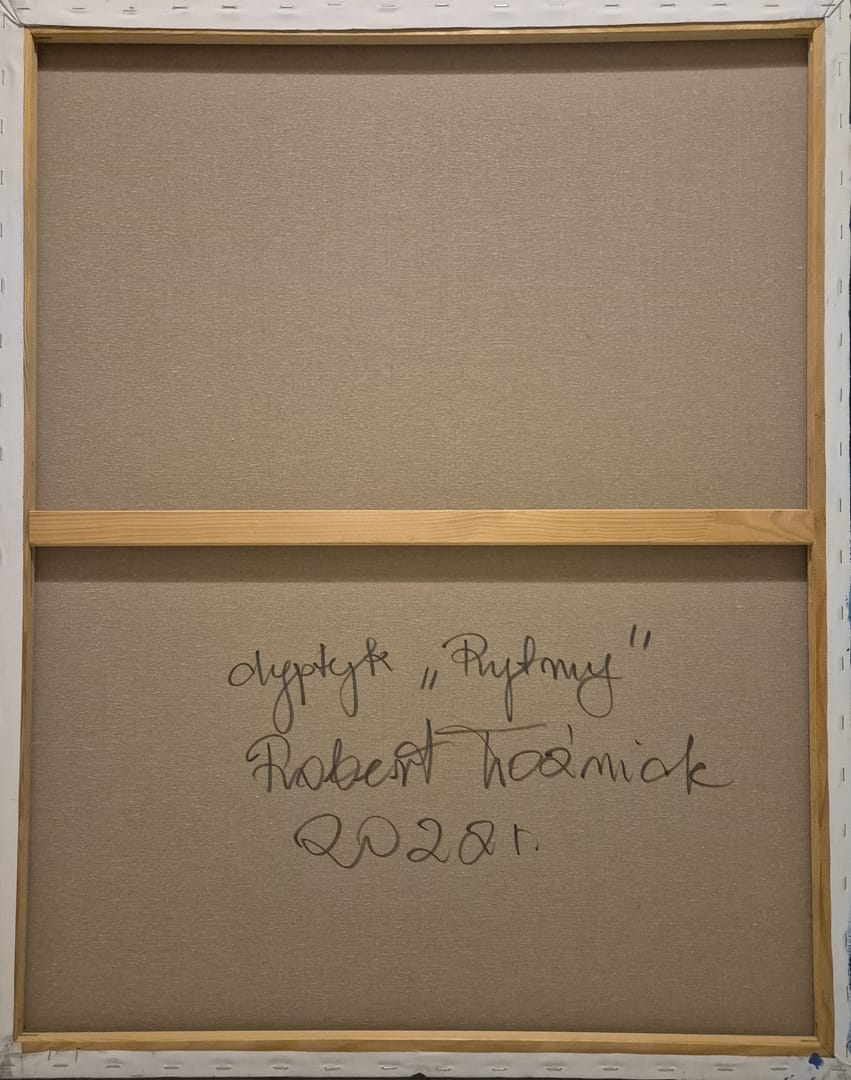 dyptyk „Rytmy”
Robert Woźniak
2022 r.